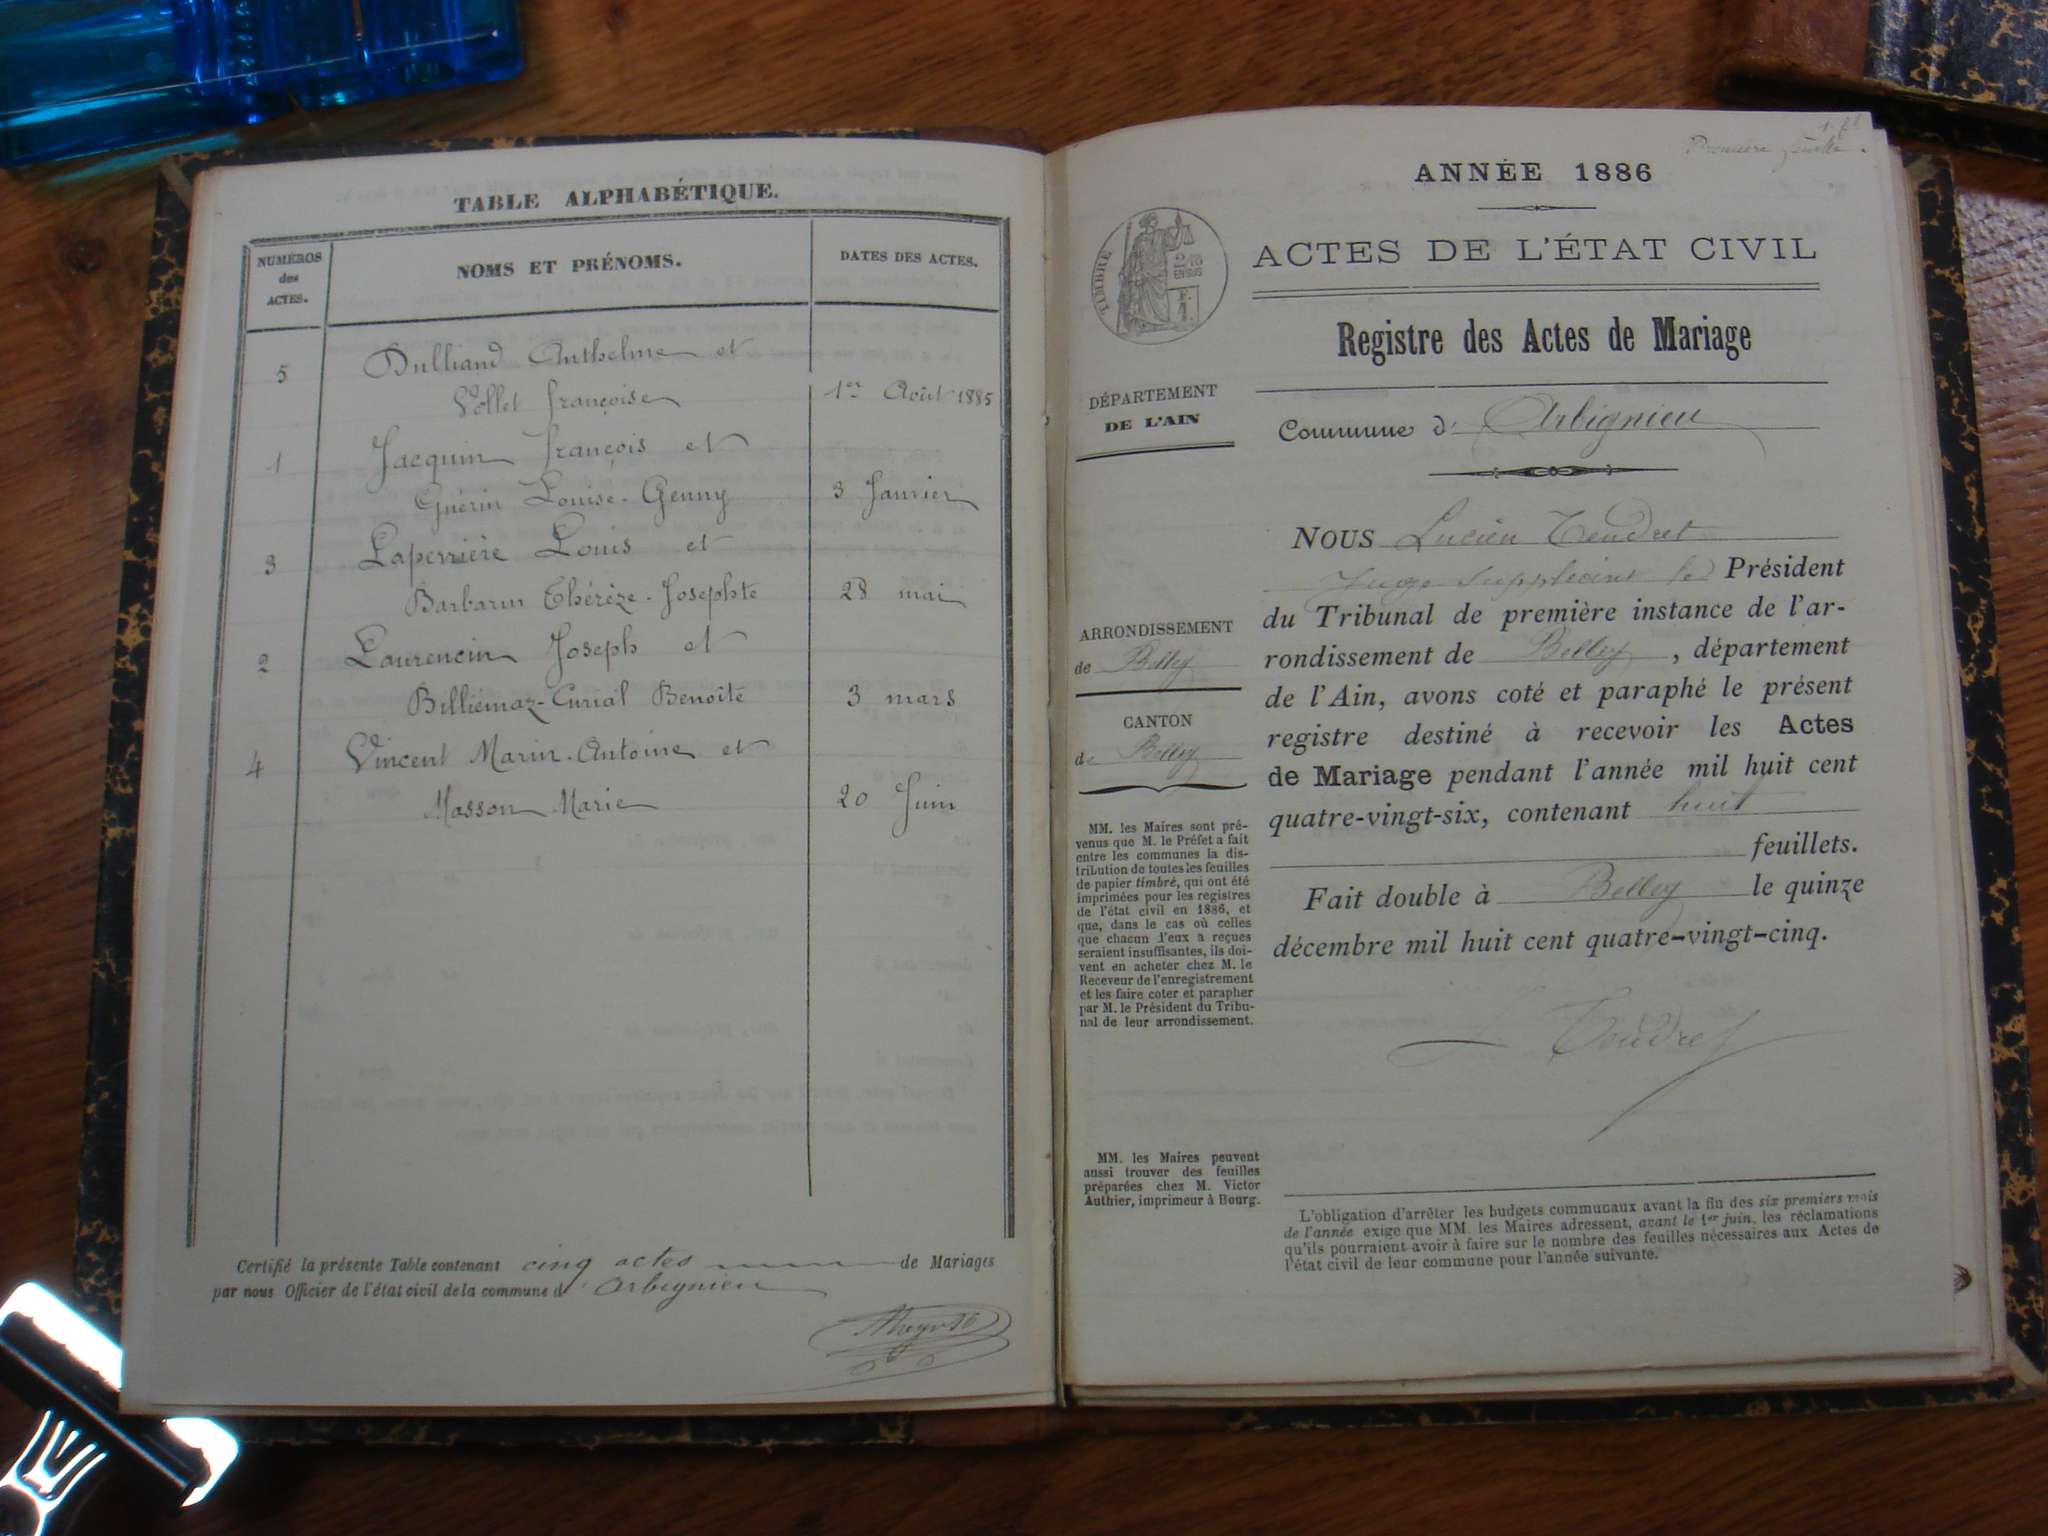 TABLE ALPHABÉTIQUE.
NUMÉROS
des
ACTES.
NOMS ET PRÉNOMS.
DATES DES ACTES.
5 Dulliand Anthelme et
Vollet françoise 1er Août 1885
1 Jacquin françois et
Guérin Louise-Genny 3 Janvier
3 Laperrière Louis et
Barbarin Thérèze-Josephte 28 mai
2 Laurencin Joseph et
Billiémaz-Curial Benoîte 3 mars
4 Vincent Marin-Antoine et
Masson Marie 20 Juin
Certifié la présente Table contenant cinq actes de Mariages
par nous Officier de l'état civil de la commune d' Arbignieu
Première feuille.
ANNÉE 1886
TIMBRE
ACTES DE L'ÉTAT CIVIL
Registre des Actes de Mariage
DÉPARTEMENT
DE L'AIN
Commune d' Arbignieu
ARRONDISSEMENT
de Belley
CANTON
de Belley
MM. les Maires sont pré-
venus que M. le Préfet a fait
entre les communes la dis-
tribution de toutes les feuilles
de papier timbré, qui ont été
imprimées pour les registres
de l'état civil en 1886, et
que, dans le cas où celles
que chacun d'eux a reçues
seraient insuffisantes, ils doi-
vent en acheter chez M. le
Receveur de l'enregistrement
et les faire coter et parapher
par M. le Président du Tribu-
nal de leur arrondissement.
MM. les Maires peuvent
aussi trouver des feuilles
préparées chez M. Victor
Authier, imprimeur à Bourg.
NOUS Lucien Tendret
Juge suppléant le Président
du Tribunal de première instance de l'ar-
rondissement de Belley, département
de l'Ain, avons coté et paraphé le présent
registre destiné à recevoir les Actes
de Mariage pendant l'année mil huit cent
quatre-vingt-six, contenant huit
feuillets.
Fait double à Belley le quinze
décembre mil huit cent quatre-vingt-cinq.
L Tendret
L'obligation d'arrêter les budgets communaux avant la fin des six premiers mois
de l'année exige que MM. les Maires adressent, avant le 1er juin, les réclamations
qu'ils pourraient avoir à faire sur le nombre des feuilles nécessaires aux Actes de
l'état civil de leur commune pour l'année suivante.